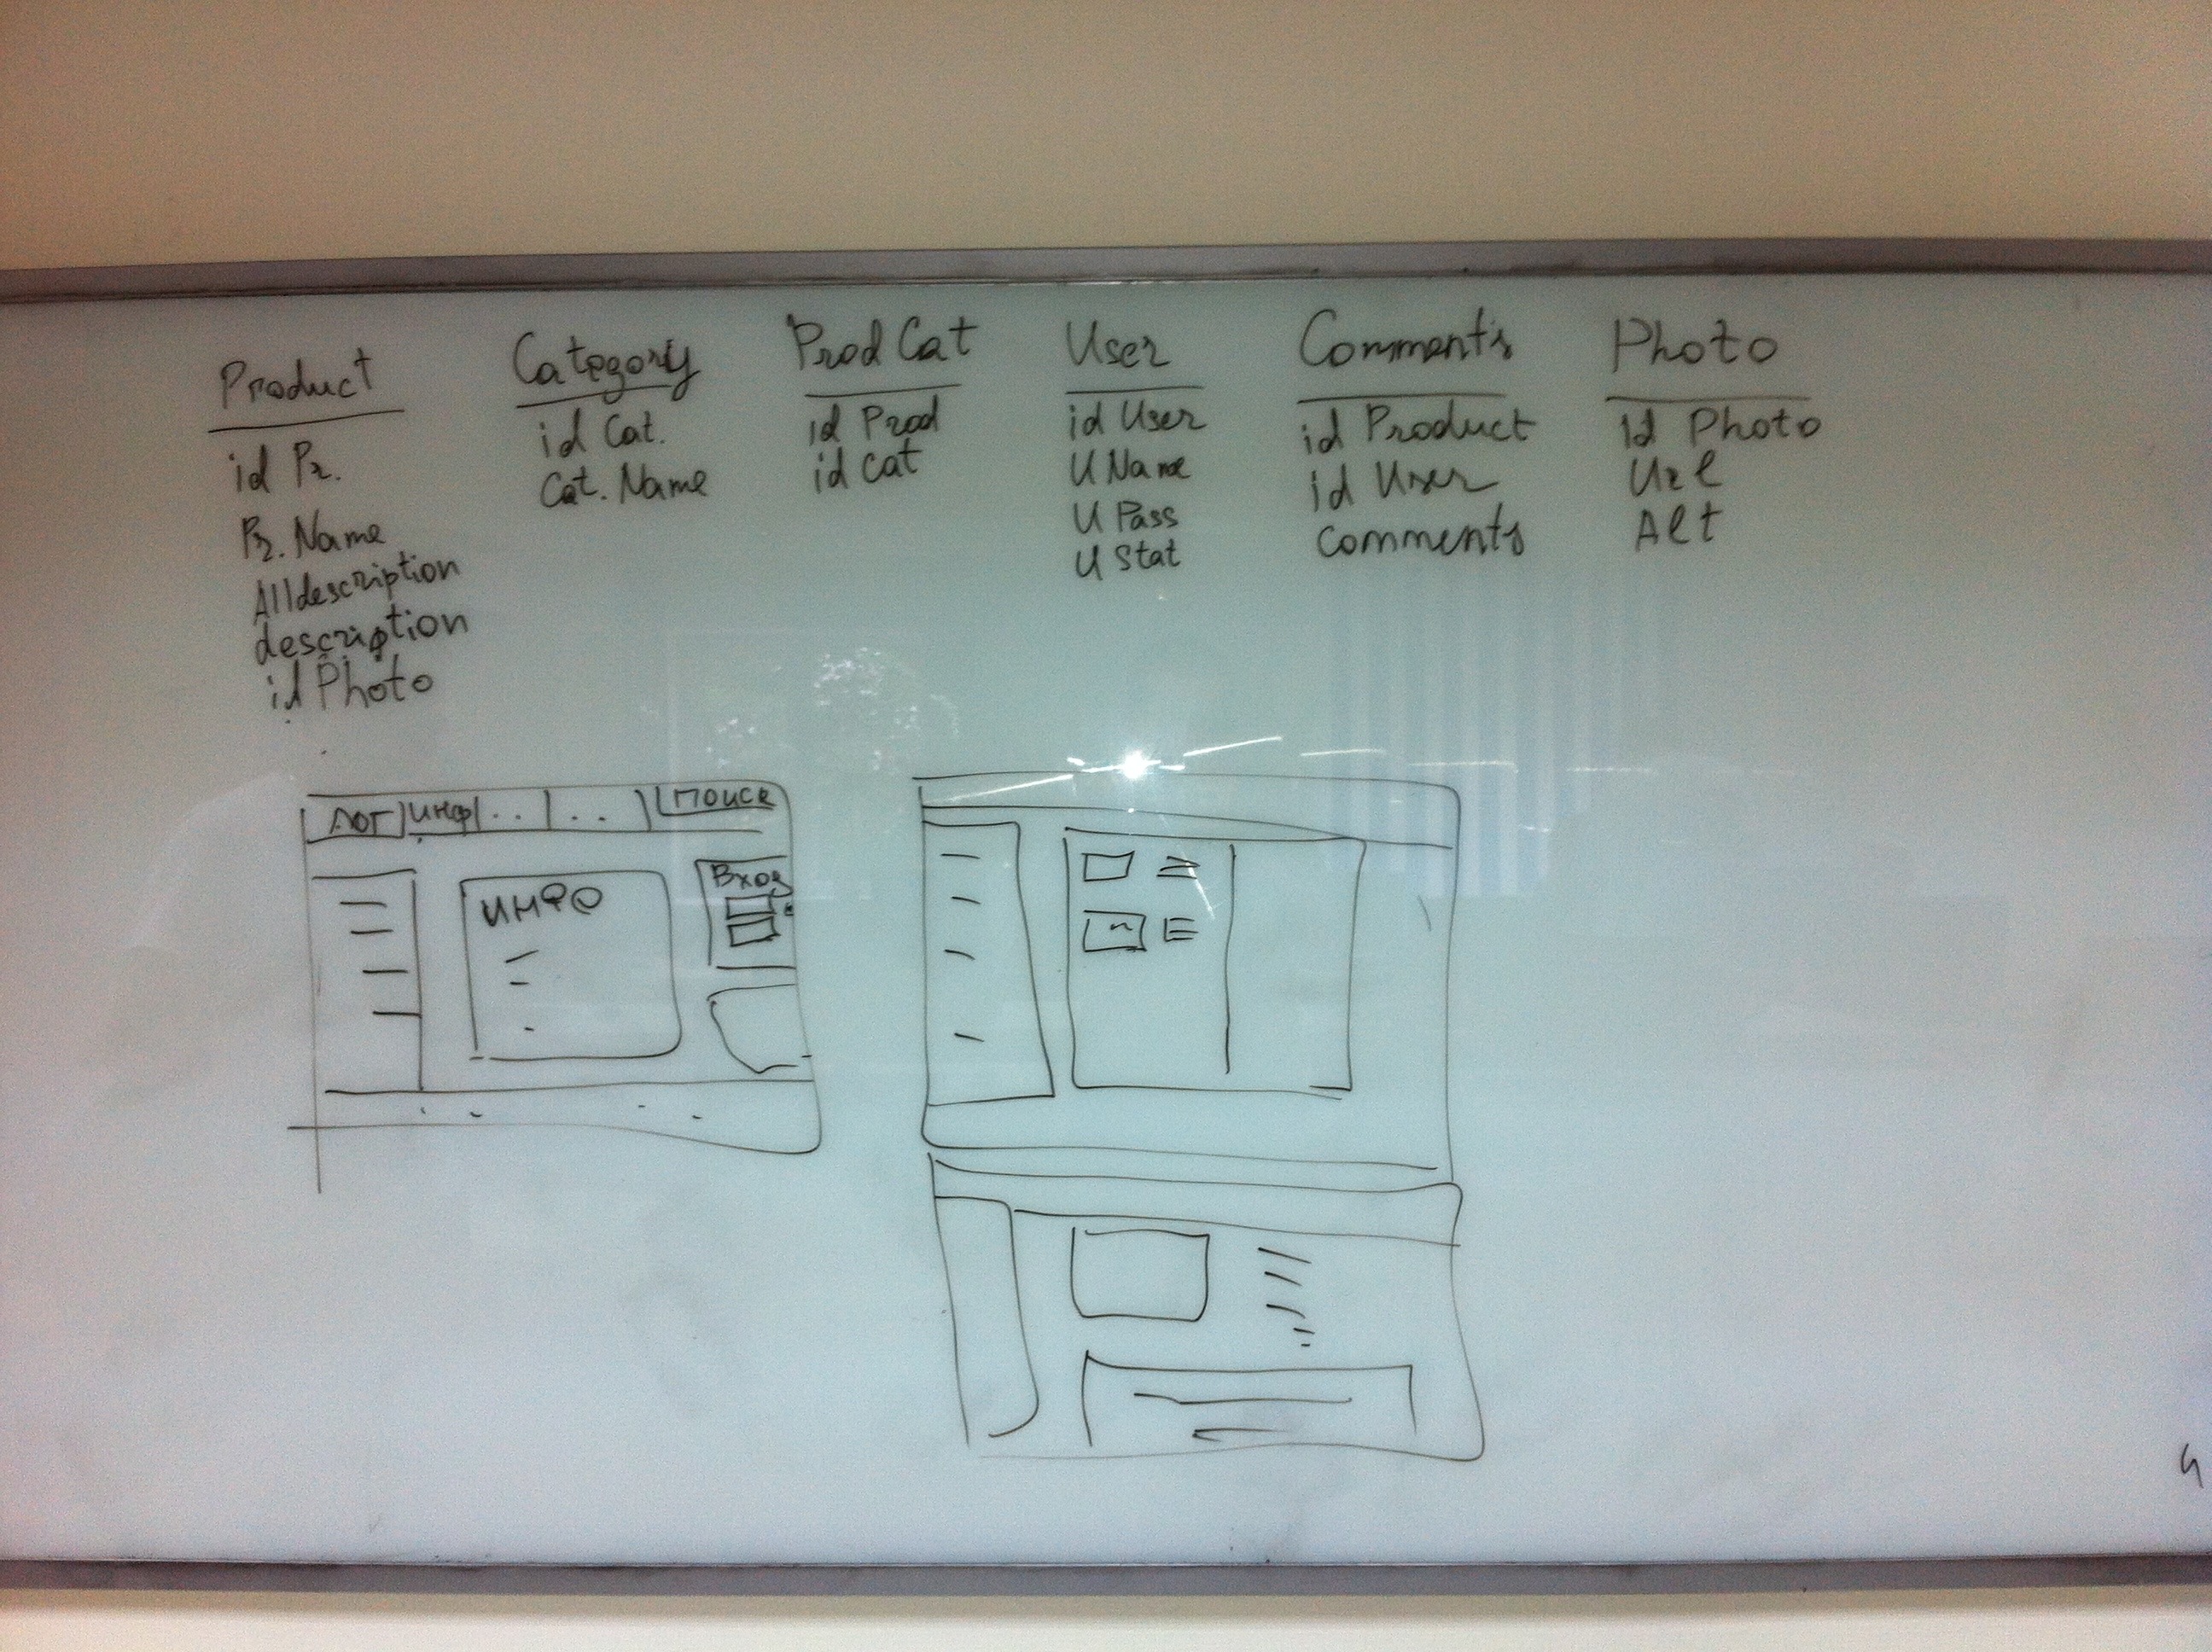 Product
id Pr.
Pr. Name
Alldescription
description
id Photo
Category
id Cat.
Cat. Name
Prod Cat
id Prod
id cat
User
id User
U Name
U Pass
U Stat
Comments
id Product
id User
comments
Photo
id Photo
Url
Alt
ЛОГ инф . . . . поиск
Вход
ИНФО